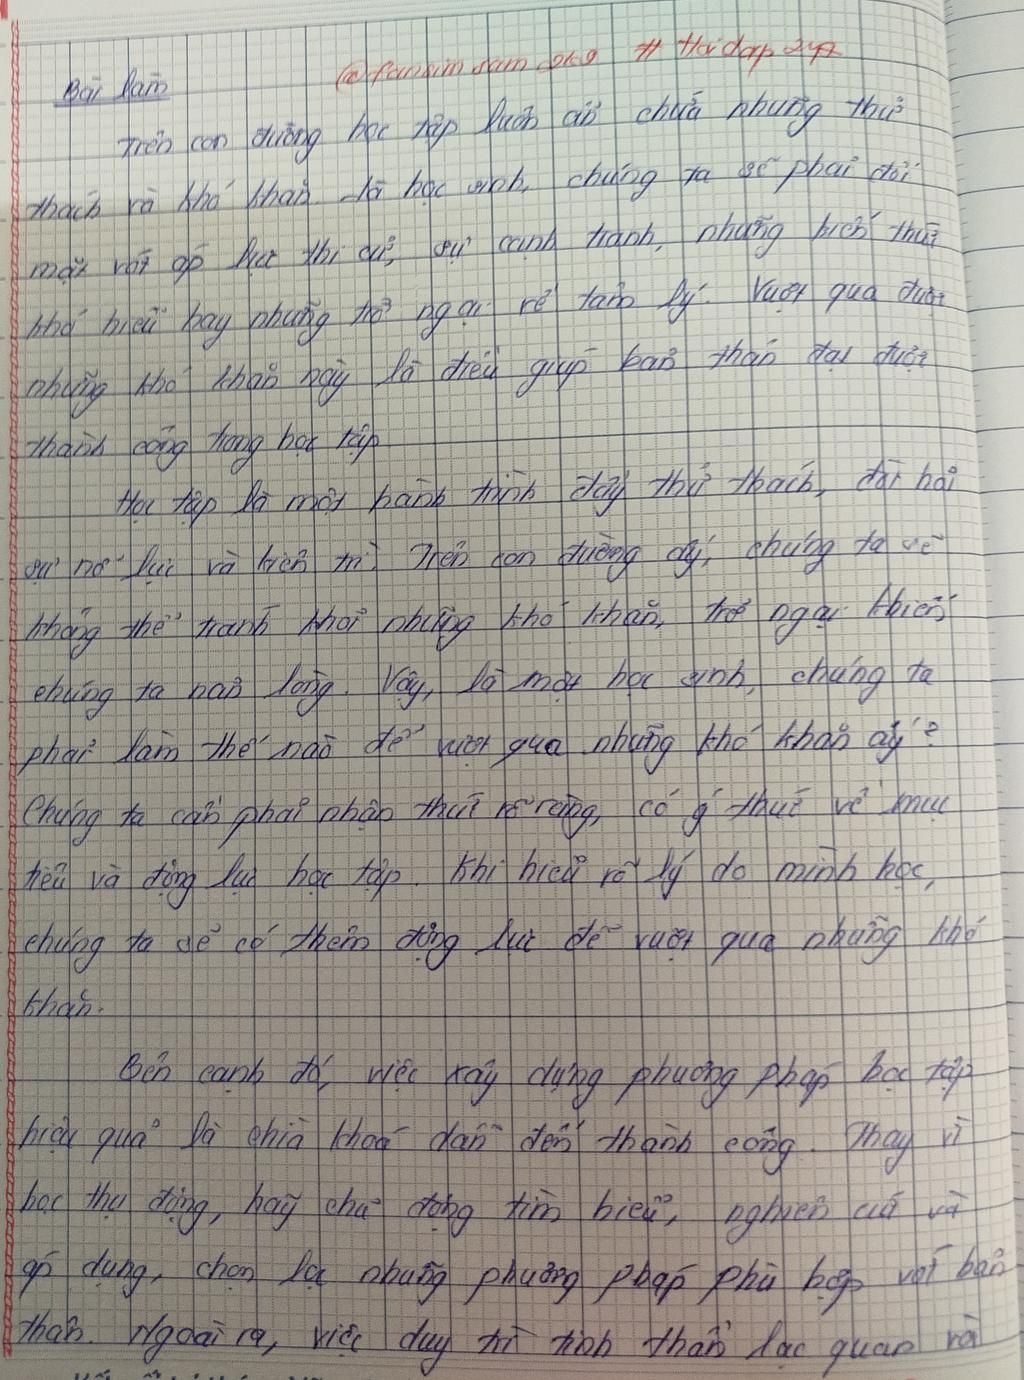 Bài làm
#Hoidap247
Trên con đường học tập luôn ẩn chứa những thử
thách và khó khăn. Là học sinh, chúng ta sẽ phải đối
mặt với áp lực thi cử, sự cạnh tranh, những kiến thức
khó hiểu hay những trở ngại về tâm lý. Vượt qua được
những khó khăn này là điều giúp bản thân đạt được
thành công trong học tập
Học tập là một hành trình đầy thử thách, đòi hỏi
sự nỗ lực và kiên trì. Trên con đường ấy, chúng ta sẽ
không thể tránh khỏi những khó khăn, trở ngại khiến
chúng ta nản lòng. Vậy, là một học sinh, chúng ta
phải làm thế nào để vượt qua những khó khăn ấy?
Chúng ta cần phải nhận thức rõ ràng, có ý thức về mục
tiêu và động lực học tập. Khi hiểu rõ lý do mình học,
chúng ta sẽ có thêm động lực để vượt qua những khó
khăn.
Bên cạnh đó, việc xây dựng phương pháp học tập
hiệu quả là chìa khoá dẫn đến thành công. Thay vì
học thụ động, hãy chủ động tìm hiểu, nghiên cứu và
áp dụng, chọn lọc những phương pháp phù hợp với bản
thân. Ngoài ra, việc duy trì tinh thần lạc quan và